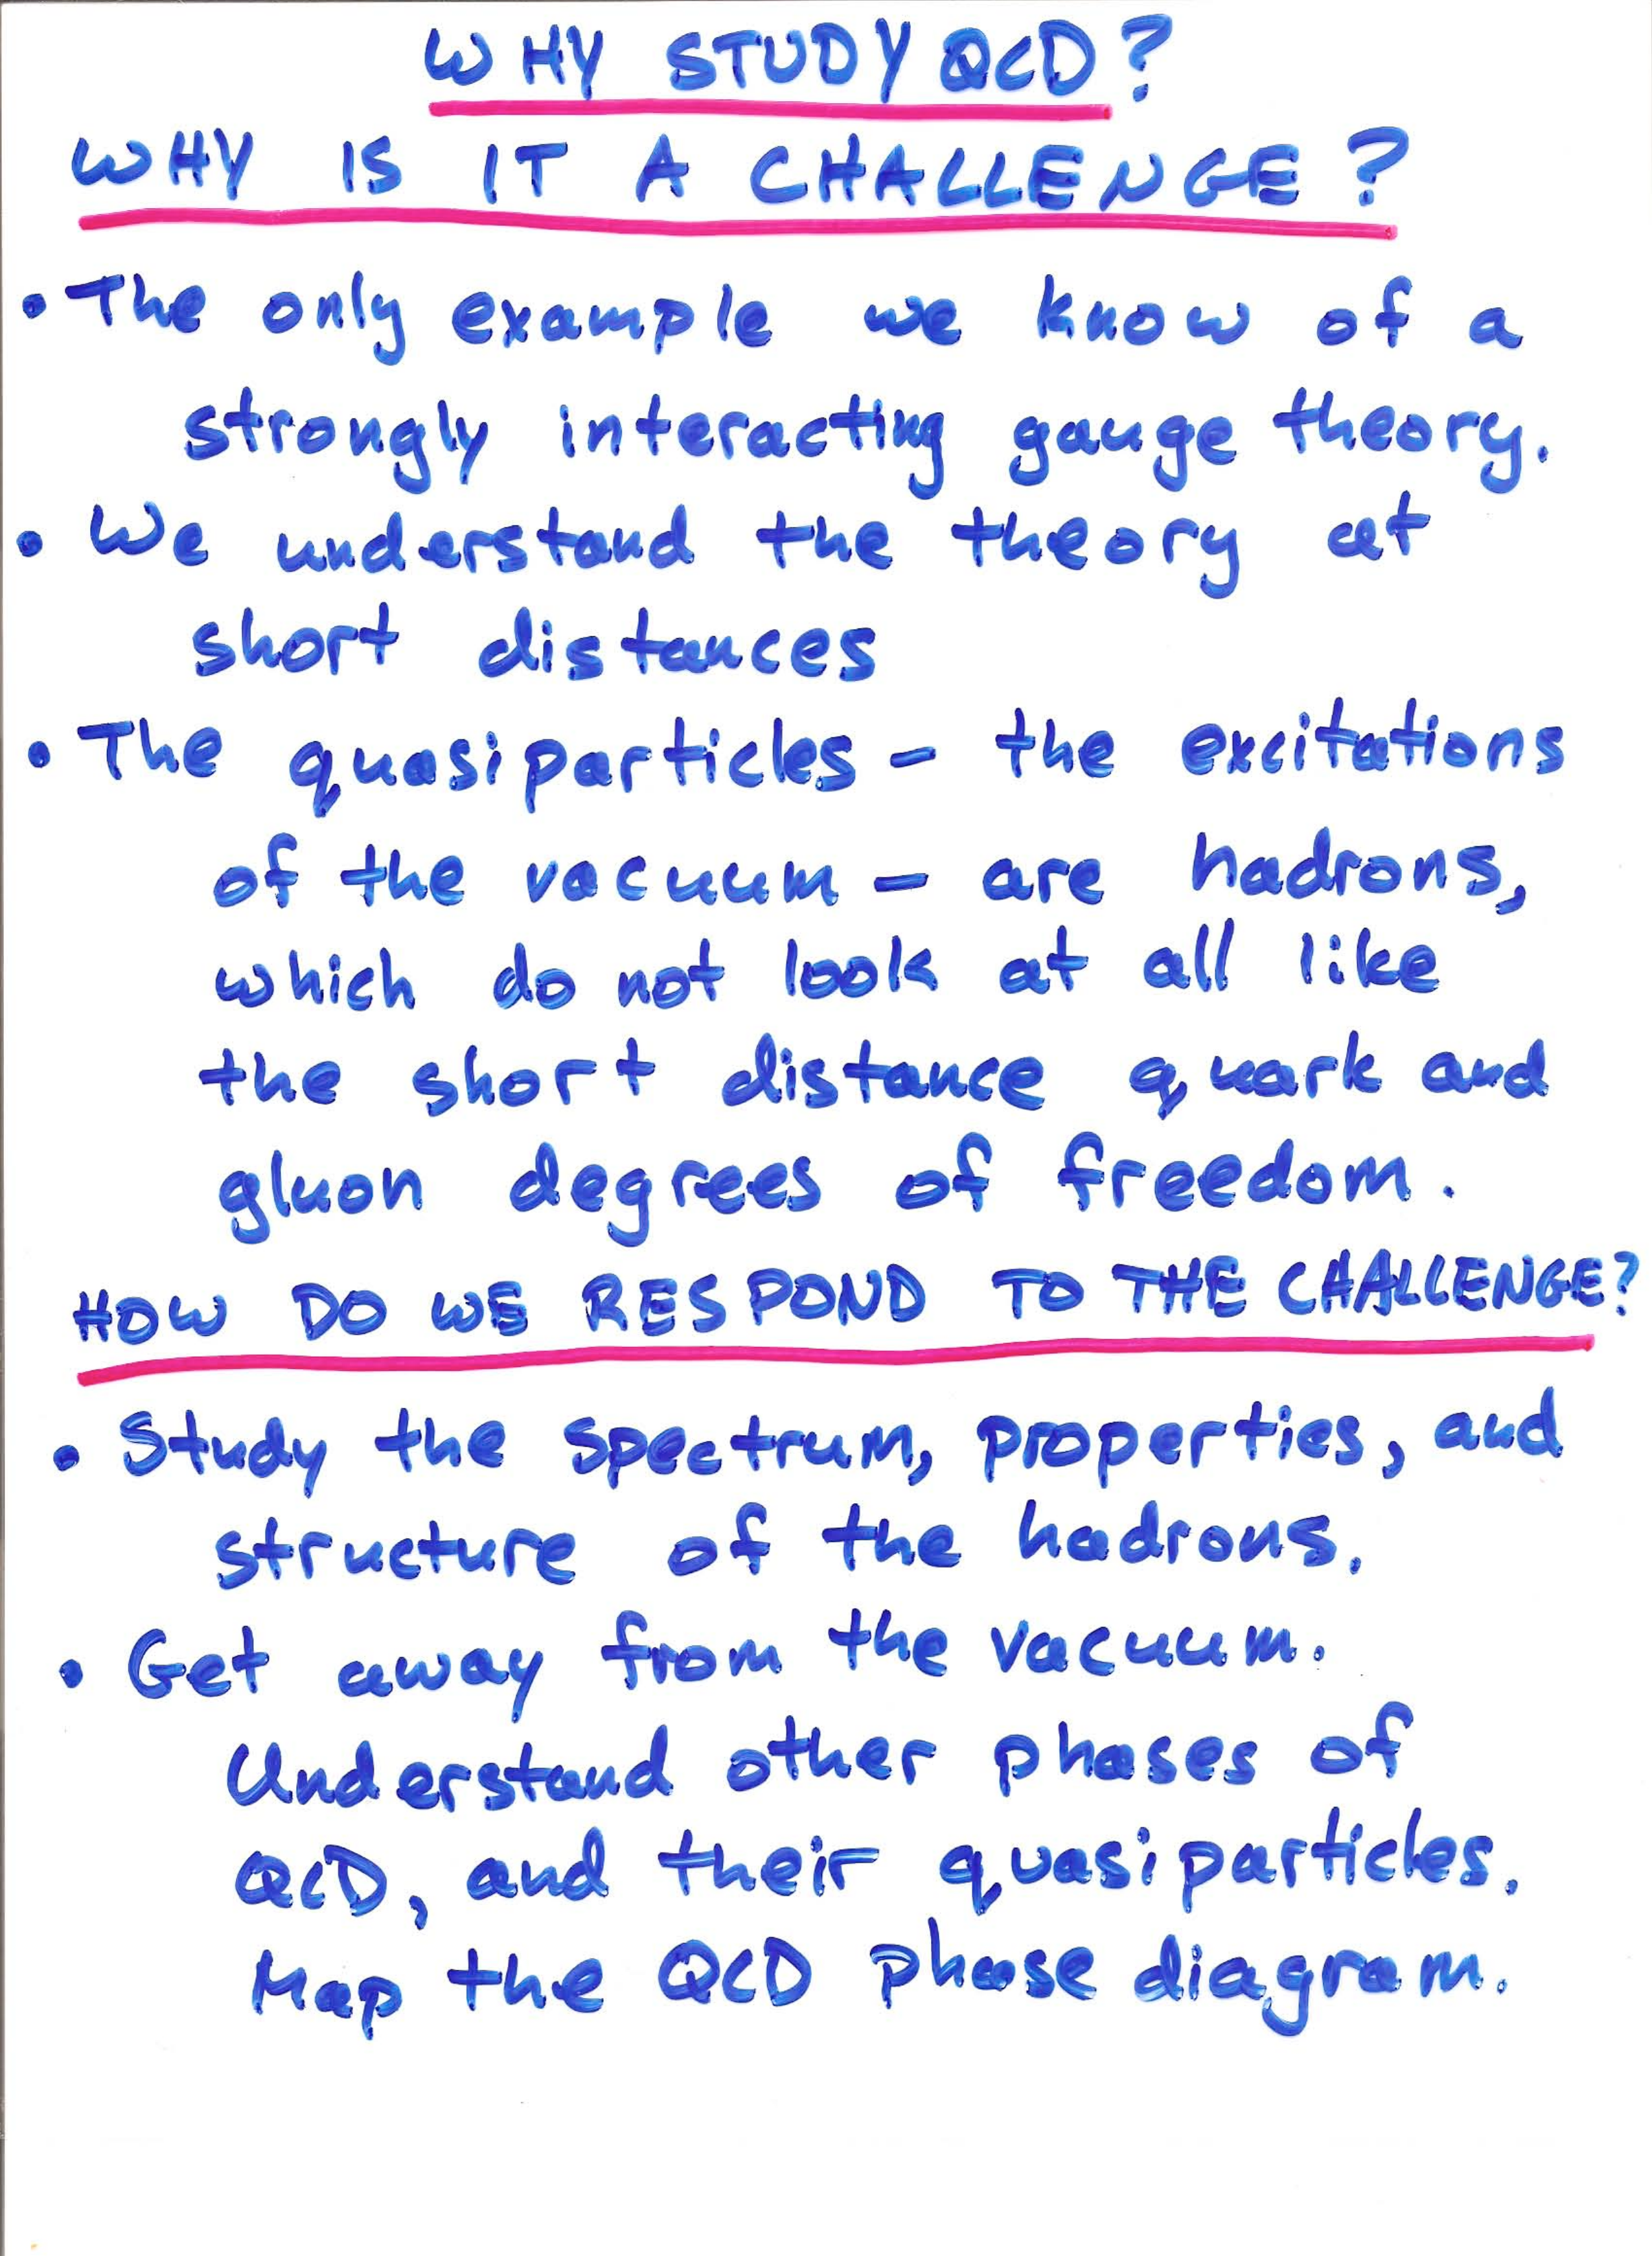 WHY STUDY QCD?
WHY IS IT A CHALLENGE?
• The only example we know of a
strongly interacting gauge theory.
• We understand the theory at
short distances
• The quasiparticles – the excitations
of the vacuum – are hadrons,
which do not look at all like
the short distance quark and
gluon degrees of freedom.
HOW DO WE RESPOND TO THE CHALLENGE?
• Study the spectrum, properties, and
structure of the hadrons.
• Get away from the vacuum.
Understand other phases of
QCD, and their quasiparticles.
Map the QCD phase diagram.